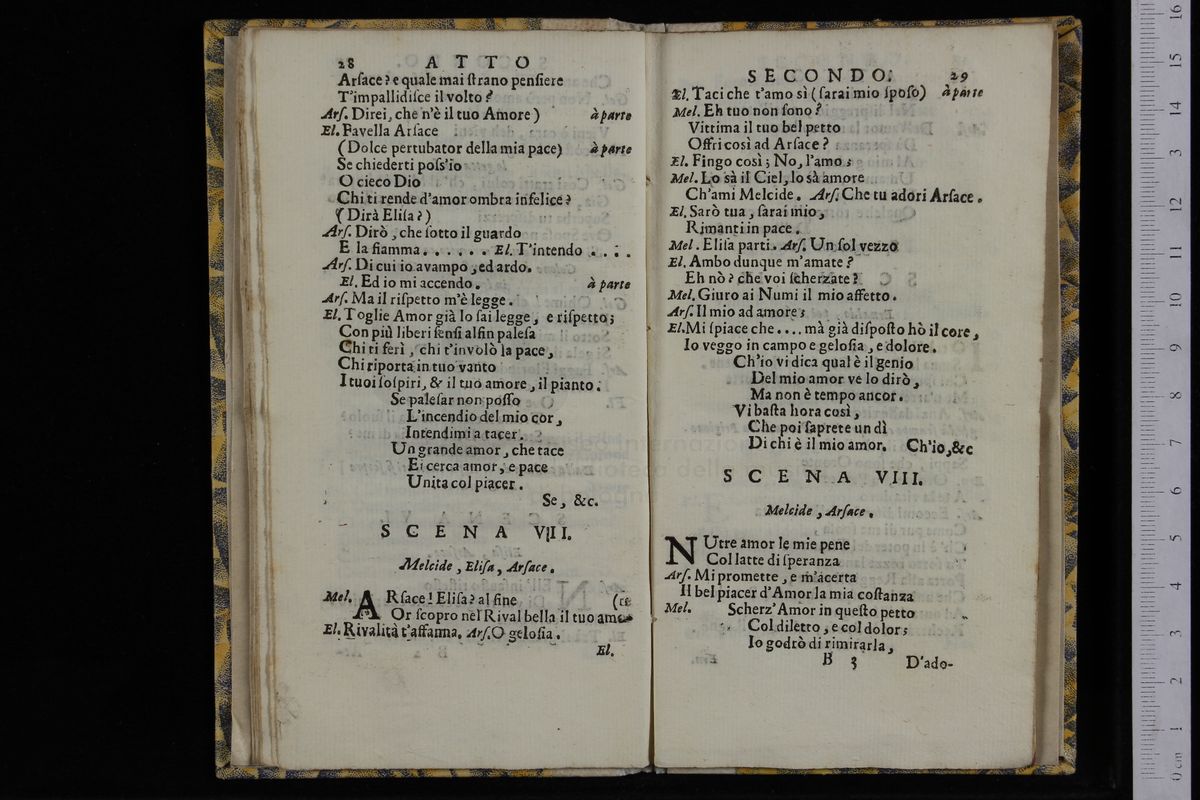 28 ATTO
Arſace? e quale mai ſtrano penſiere
T'impallidiſce il volto?
Arſ. Direi, che n'è il tuo Amore) à parte
El. Favella Arſace
(Dolce pertubator della mia pace) à parte
Se chiederti poſs'io
O cieco Dio
Chi ti rende d'amor ombra infelice?
(Dirà Eliſa?)
Arſ. Dirò, che ſotto il guardo
E la fiamma...... El. T'intendo ....
Arſ. Di cui io avampo, ed ardo.
El. Ed io mi accendo. à parte
Arſ. Ma il riſpetto m'è legge.
El. Toglie Amor già lo ſai legge, e riſpetto;
Con più liberi ſenſi alfin paleſa
Chi ti ferì, chi t'involò la pace,
Chi riporta in tuo vanto
I tuoi ſoſpiri, & il tuo amore, il pianto.
Se paleſar non poſſo
L'incendio del mio cor,
Intendimi a tacer.
Un grande amor, che tace
Ei cerca amor, e pace
Unita col piacer.
Se, &c.
SCENA VII.
Melcide, Eliſa, Arſace.
Mel. ARſace! Eliſa? al fine (re
Or ſcopro nel Rival bella il tuo amo-
El. Rivalità t'affanna. Arſ. O geloſia.
El.
SECONDO. 29
El. Taci che t'amo sì (ſarai mio ſpoſo) à parte
Mel. Eh tuo non ſono?
Vittima il tuo bel petto
Offri così ad Arſace?
El. Fingo così; No, l'amo;
Mel. Lo sà il Ciel, lo sà amore
Ch'ami Melcide. Arſ. Che tu adori Arſace.
El. Sarò tua, ſarai mio,
Rimanti in pace.
Mel. Eliſa parti. Arſ. Un ſol vezzo
El. Ambo dunque m'amate?
Eh nò? che voi ſcherzate?
Mel. Giuro ai Numi il mio affetto.
Arſ. Il mio ad amore;
El. Mi ſpiace che.... mà già diſpoſto hò il core,
Io veggo in campo e geloſia, e dolore.
Ch'io vi dica qual è il genio
Del mio amor ve lo dirò,
Ma non è tempo ancor.
Vi baſta hora così,
Che poi ſaprete un dì
Di chi è il mio amor. Ch'io, &c
SCENA VIII.
Melcide, Arſace.
NUtre amor le mie pene
Col latte di ſperanza
Arſ. Mi promette, e m'acerta
Il bel piacer d'Amor la mia coſtanza
Mel. Scherz'Amor in queſto petto
Col diletto, e col dolor;
Io godrò di rimirarla,
B 3 D'ado-
0 cm 1 2 3 4 5 6 7 8 9 10 11 12 13 14 15 16